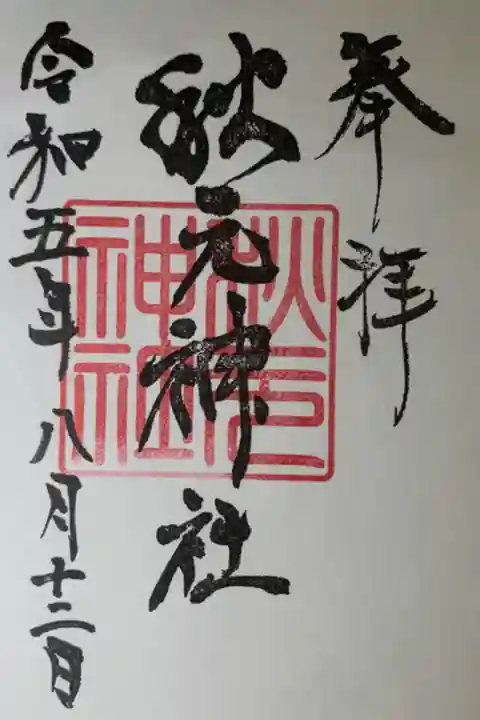 奉拝
秋元神社
秋元
神社
神社
令和五年八月十二日